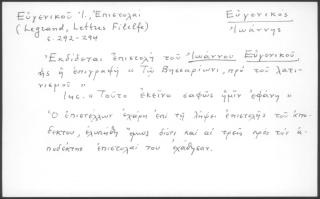 Εὐγενικοῦ Ἰ., Ἐπιστολαὶ
Εὐγενικὸς
(Legrand, Lettres Filelfe)
Ἰωάννης
σ. 292-294
Ἐκδίδεται ἐπιστολὴ τοῦ "Ἰωάννου Εὐγενικοῦ
ἧς ἡ ἐπιγραφὴ "Τῷ Βησσαρίωνι, πρὸ τοῦ λατι-
νισμοῦ"
Ἡς. "Τοῦτο ἐκεῖνο σαφῶς ἡμῖν ἐφάνη"
Ὁ ἐπιστέλλων ἐχάρη ἐπὶ τῇ λήψει ἐπιστολῆς τοῦ ἀπο-
δέκτου, ἐλυπήθη ὅμως διότι καὶ αἱ τρεῖς πρὸς τὸν ἀ-
ποδέκτην ἐπιστολαί του ἐχάθησαν.